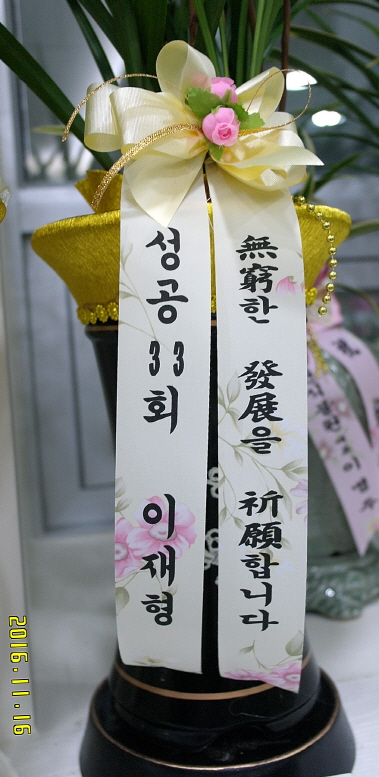 無窮한 發展을 祈願합니다
성공33회 이재형
2016.11.16